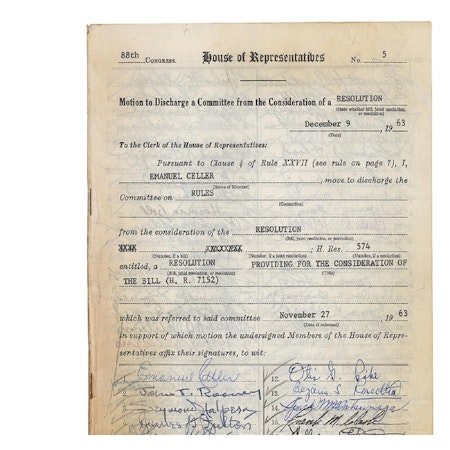 88th CONGRESS. House of Representatives No. 5
Motion to Discharge a Committee from the Consideration of a RESOLUTION
(State whether bill, joint resolution, or resolution)
December 9, 1963
(Date)
To the Clerk of the House of Representatives:
Pursuant to Clause 4 of Rule XXVII (see rule on page 7), I,
EMANUEL CELLER, move to discharge the
(Name of Member)
Committee on RULES
(Committee)
from the consideration of the RESOLUTION
(Bill, joint resolution, or resolution)
; H. Res. 574
(Number, if a bill) (Number, if a joint resolution) (Number, if a resolution)
entitled, a RESOLUTION PROVIDING FOR THE CONSIDERATION OF
(Bill, joint resolution, or resolution) (Title)
THE BILL (H. R. 7152)
which was referred to said committee November 27 1963
(Date of reference)
in support of which motion the undersigned Members of the House of Repre-
sentatives affix their signatures, to wit:
Emanuel Celler 12. Otis G. Pike
2. John J. Rooney 13. Benjamin S. Rosenthal
3. Seymour Halpern 14. Spark M. Matsunaga
James G. Fulton 15. Frank M. Clark